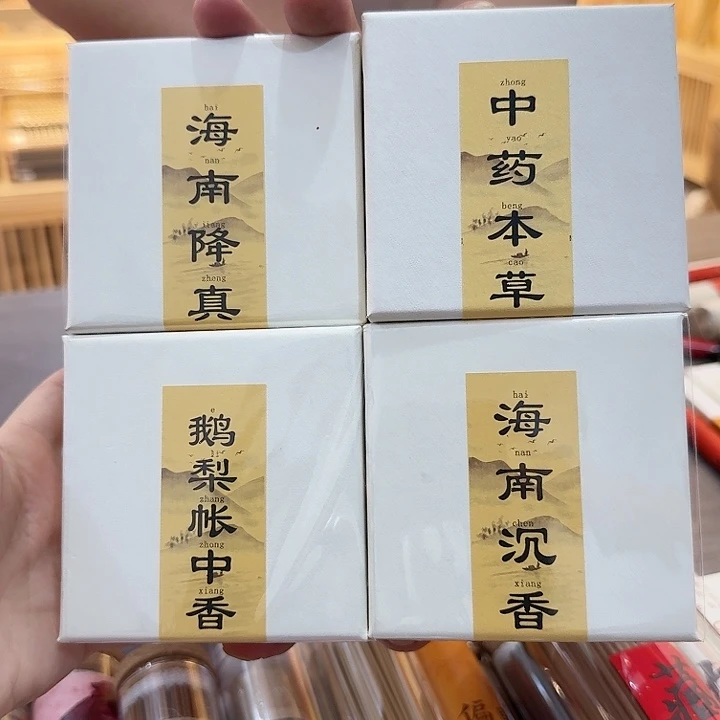 hai
海
nan
南
jiang
降
zheng
真
zhong
中
yao
药
beng
本
cao
草
e
鹅
li
梨
zhang
帐
zhong
中
xiang
香
hai
海
nan
南
chen
沉
xiang
香
偏